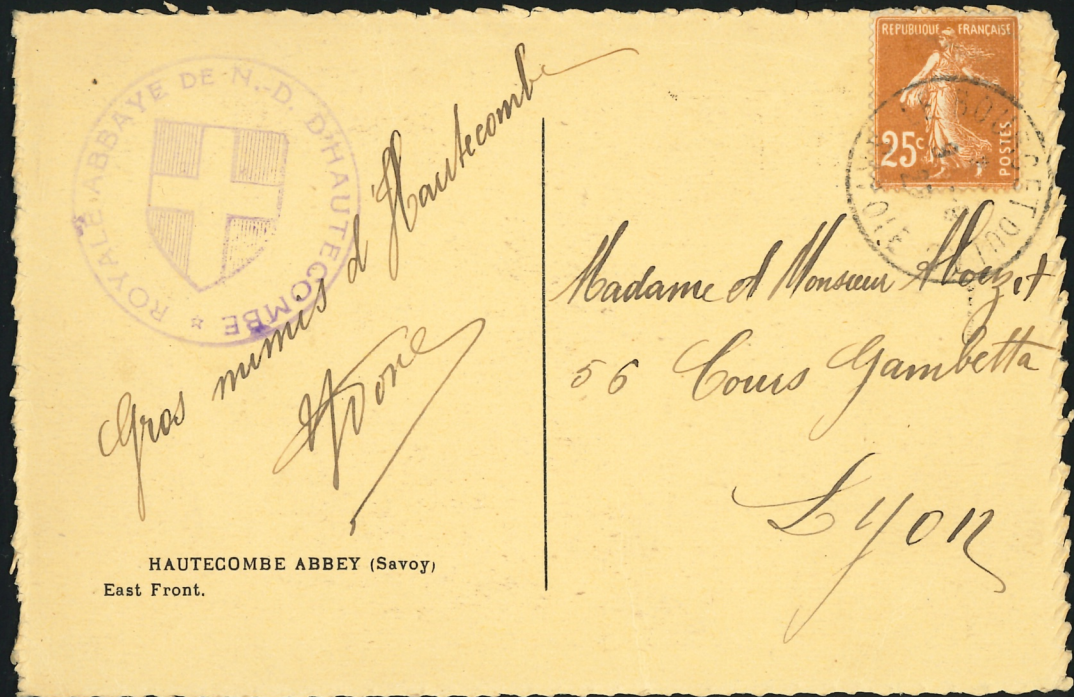 ROYALE ABBAYE DE N.-D. D'HAUTECOMBE *
Gros mimis d'Hautecombe
Yvone
HAUTECOMBE ABBEY (Savoy)
East Front.
REPUBLIQUE FRANÇAISE
25c
POSTES
Madame et Monsieur
56 Cours Gambetta
Lyon